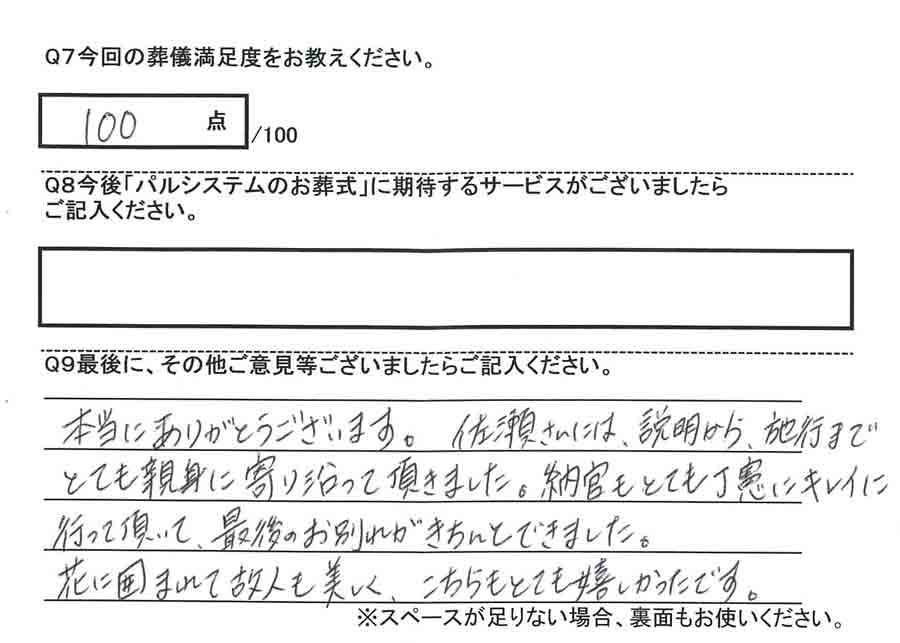 Q7今回の葬儀満足度をお教えください。
100 点 /100
Q8今後「パルシステムのお葬式」に期待するサービスがございましたら
ご記入ください。
Q9最後に、その他ご意見等ございましたらご記入ください。
本当にありがとうございます。 佐瀬さんには、説明から、施行まで
とても親身に寄り沿って頂きました。納官もとても丁寧にキレイに
行って頂いて、最後のお別れがきちんとできました。
花に囲まれて故人も美しく、こちらもとても嬉しかったです。
※スペースが足りない場合、裏面もお使いください。